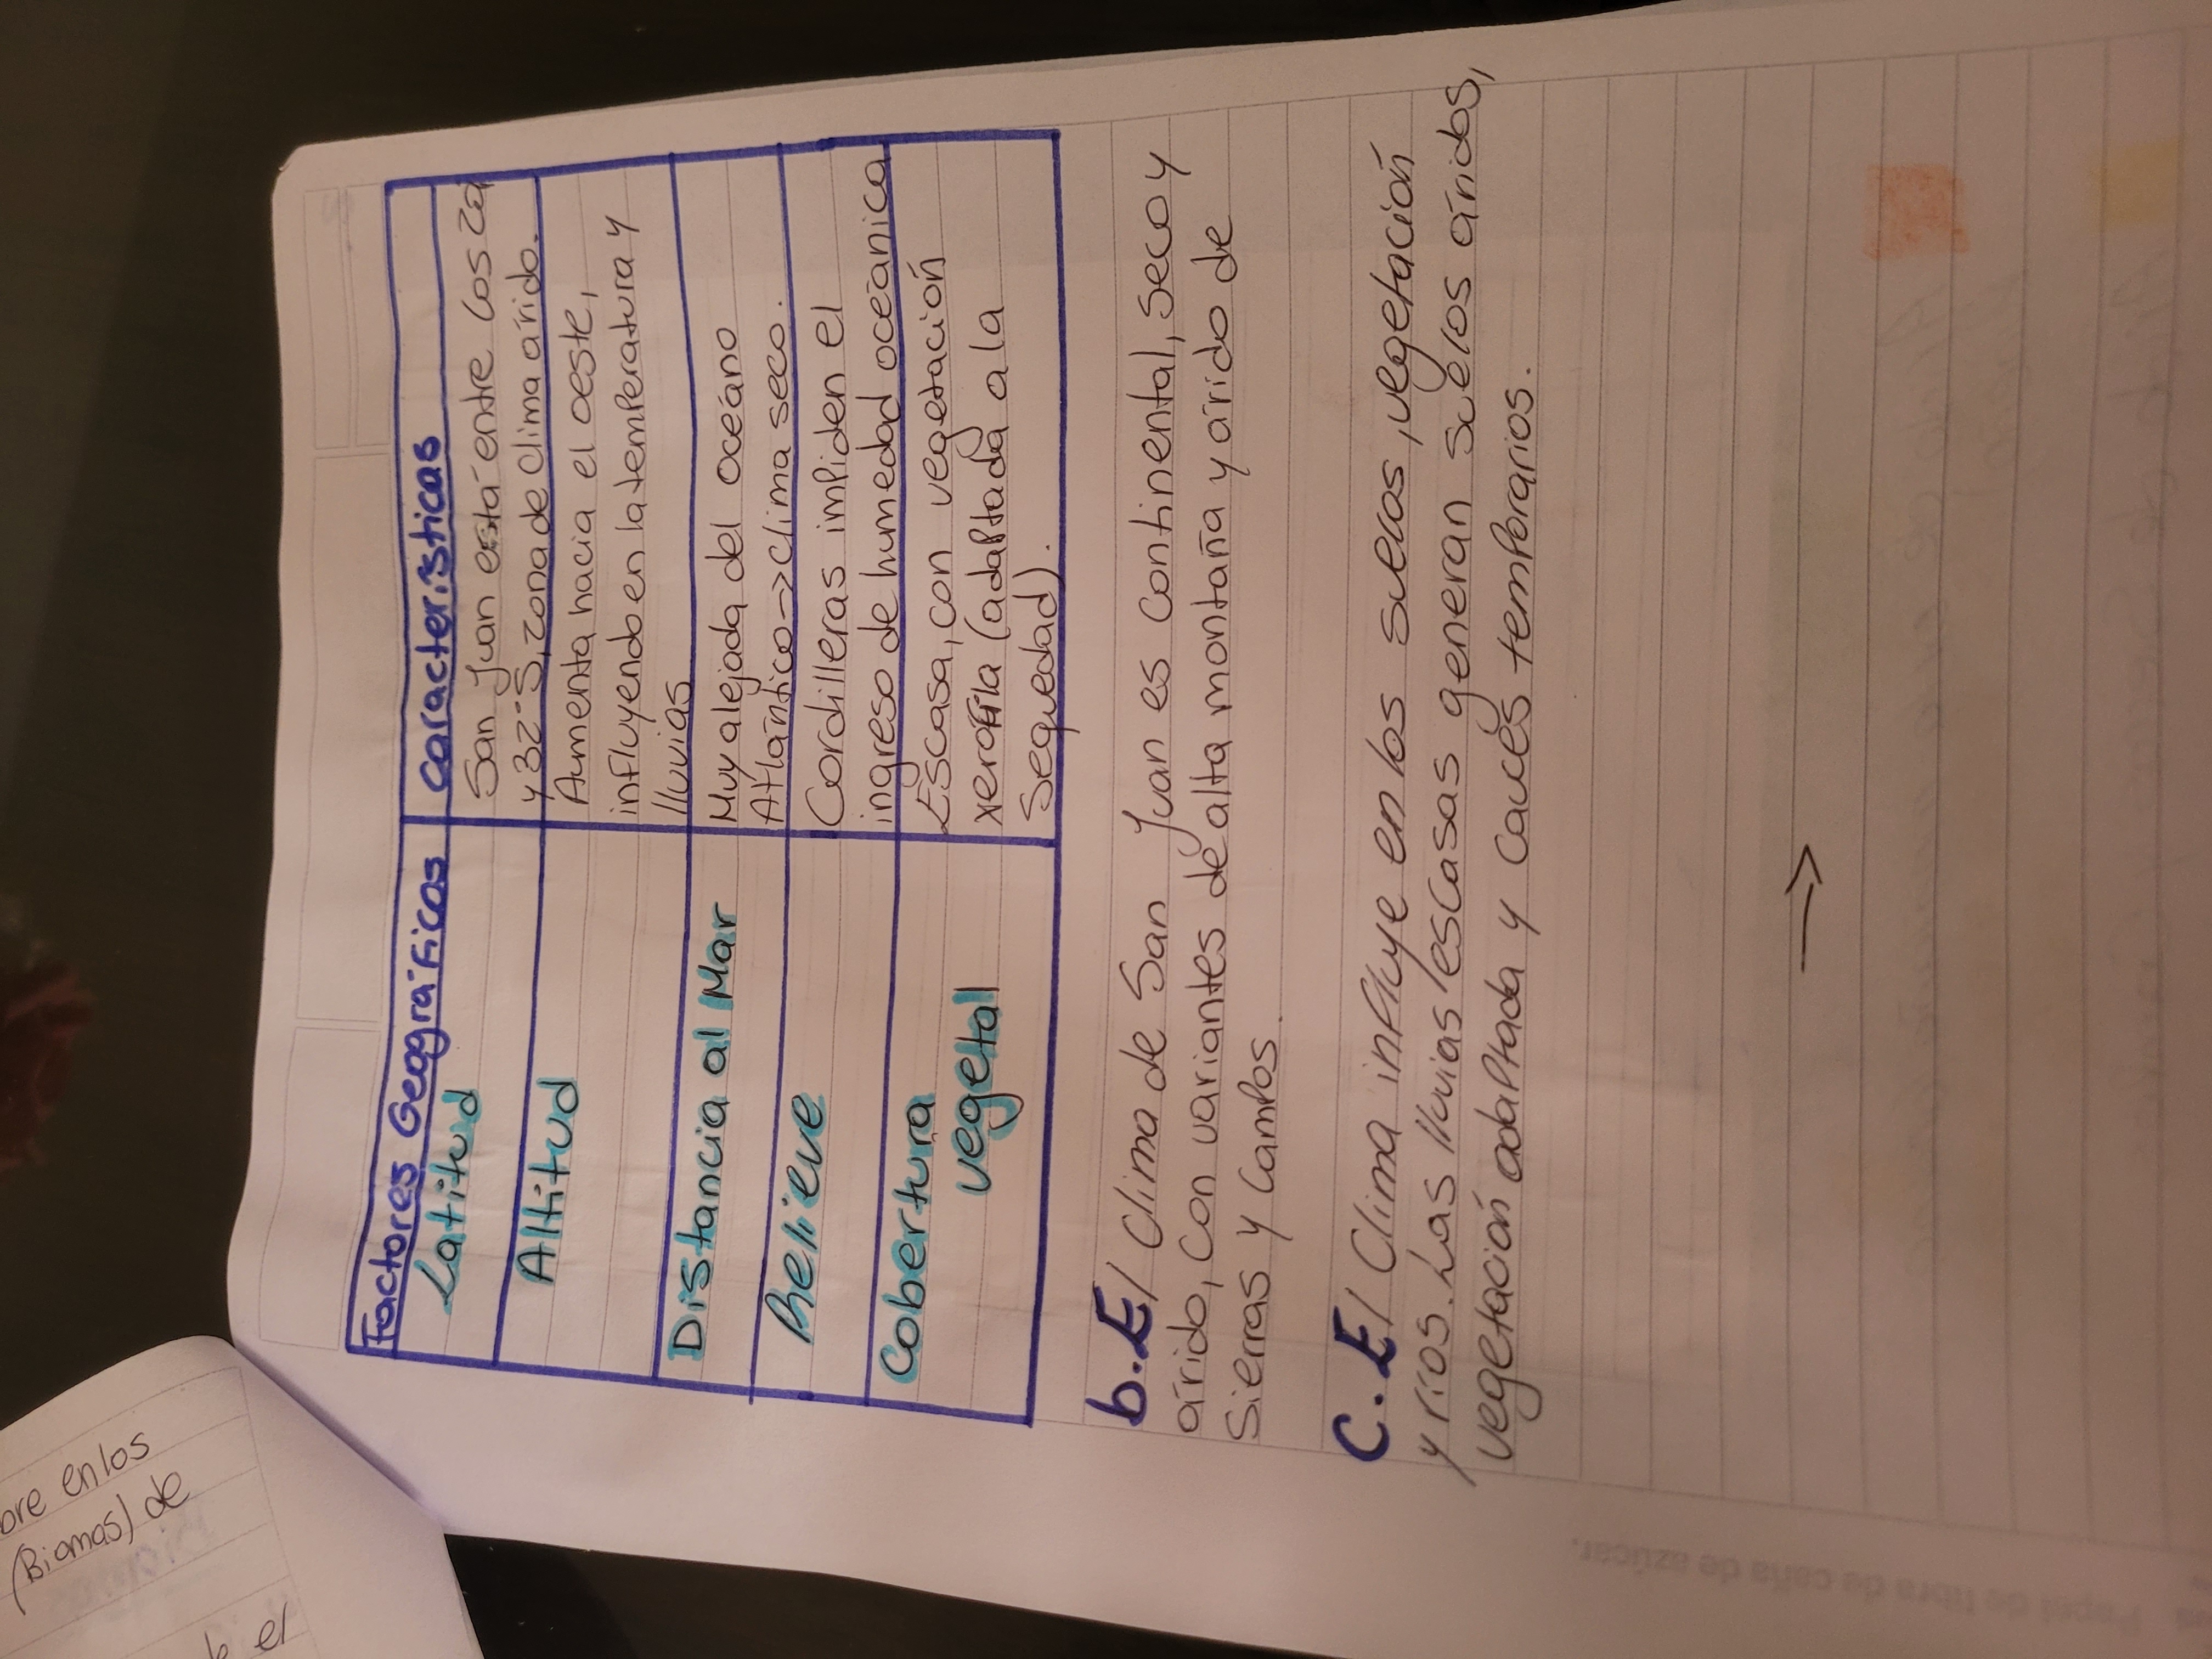 Factores Geográficos
Características
Latitud
San Juan está entre los 28
y 32° S, zona de clima árido.
Altitud
Aumenta hacia el oeste,
influyendo en la temperatura y
lluvias
Distancia al Mar
Muy alejada del océano
Atlántico→Clima seco.
Relieve
Cordilleras impiden el
ingreso de humedad oceánica
Cobertura
vegetal
Escasa, con vegetación
xerófila (adaptada a la
Sequedad).
b. El Clima de San Juan es continental, seco y
árido, con variantes de alta montaña y árido de
Sierras y Campos.
C. El Clima influye en los suelos, vegetación
y ríos. Las lluvias escasas generan suelos áridos,
vegetación adaptada y cauces temporarios.
→
en los
(Biomas) de
el
Papel de fibra de caña de azúcar.